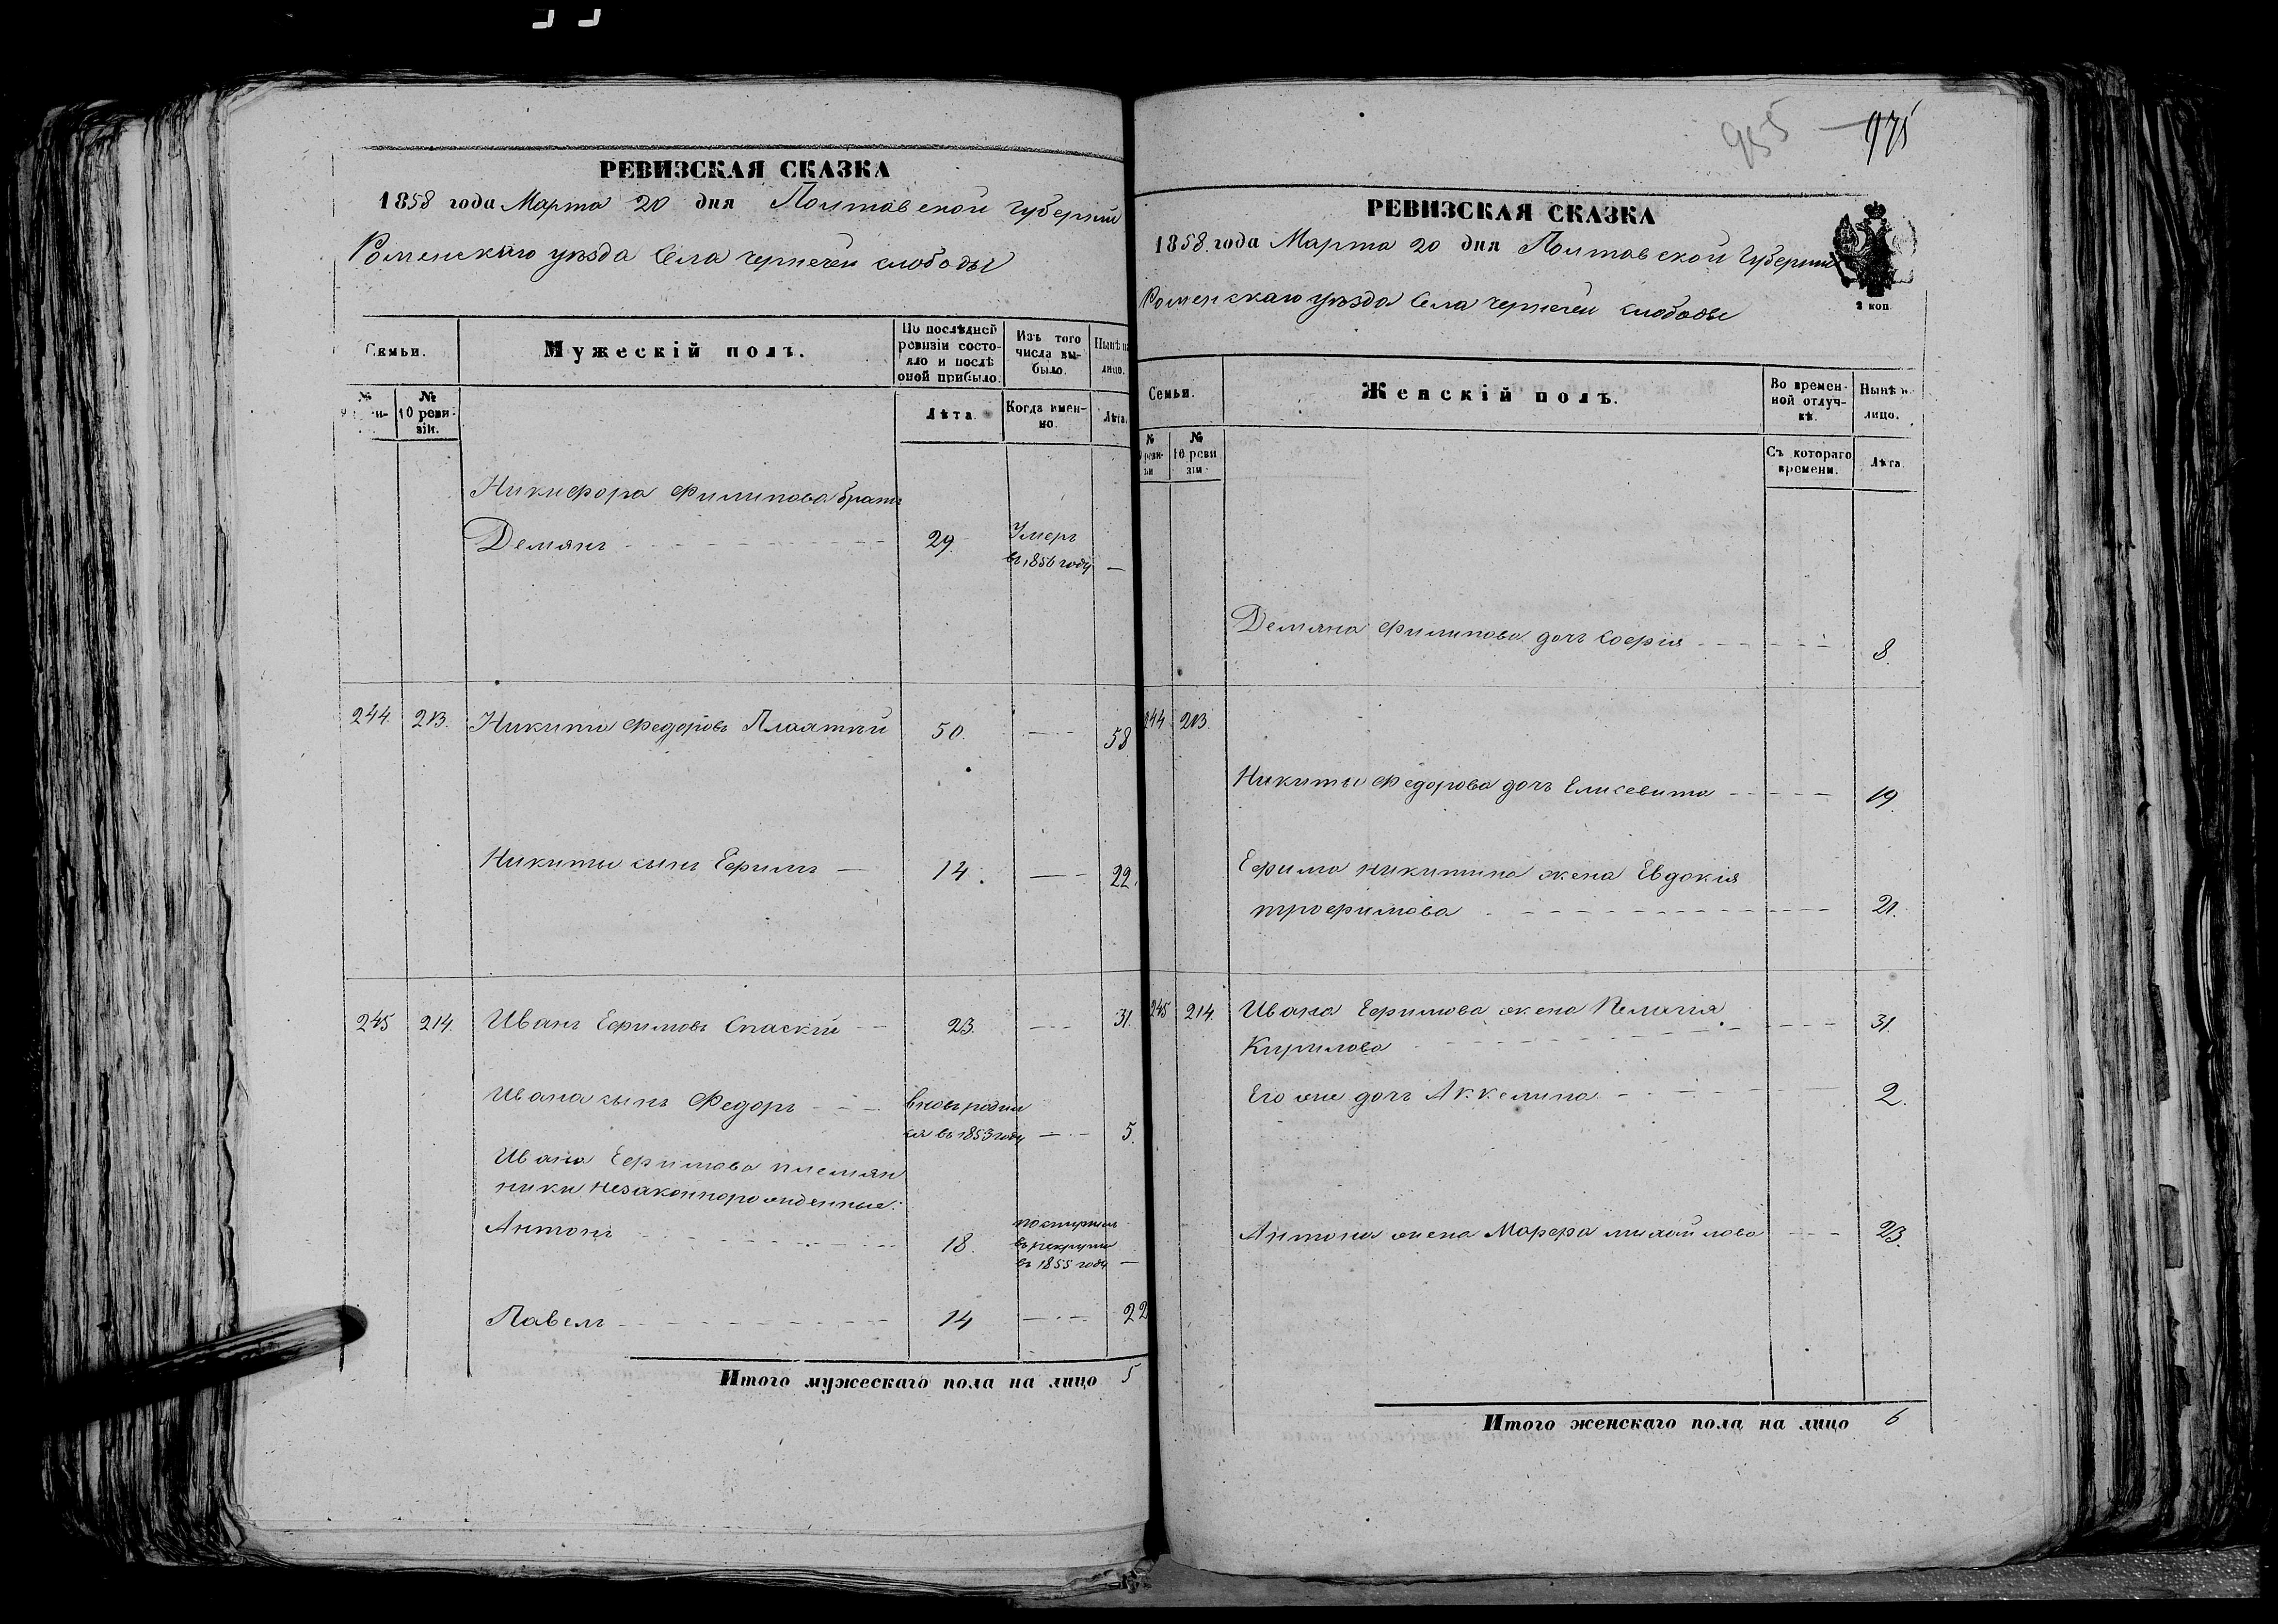 РЕВИЗСКАЯ СКАЗКА
1858 года Марта 20 дня Полтавской Губерніи
Роменскаго уѣзда Села чернечей слободы
Семьи.
Мужескій полъ.
По послѣдней ревизіи состояло и послѣ оной прибыло.
Изъ того числа выбыло.
Нынѣ на лицо.
№
№ 10 ревизіи.
Лѣта.
Когда именно.
Лѣта.
Никифора Филипова братъ
Демянъ 29. Умеръ
въ 1856 году —
244. 213. Никита Федоровъ 50. — 58
Никиты сынъ Ефимъ — 14. — 22.
245 214. Иванъ Ефимовъ Спаскій 23. — 31.
Ивана сынъ Федоръ вновь родил
ся въ 1853 году — 5.
Ивана Ефимова племян
ники незаконнорожденные:
Антонъ 18. поступилъ
въ рекруты
въ 1855 году —
Павелъ 14 — 22
Итого мужескаго пола на лицо 5
955 — 975
РЕВИЗСКАЯ СКАЗКА
1858 года Марта 20 дня Полтавской Губерніи
Роменскаго уѣзда Села чернечей слободы
2 коп.
Семьи.
Женскій полъ.
Во временной отлучкѣ.
Нынѣ на лицо.
№ ревизіи
№ 10 ревизіи.
Съ котораго времени.
Лѣта.
Демяна Филипова дочь Софія 8.
244 213.
Никиты Федорова дочь Елисевита 19
Ефима никитина жена Евдокія
трофимова 21.
245 214. Ивана Ефимова жена Пелагія 31.
Кирилова
Его же дочь Аккелина 2.
Антона жена Марфа михайлова 23.
Итого женскаго пола на лицо 6